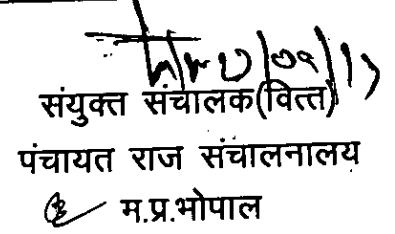 संयुक्त संचालक(वित्त)
पंचायत राज संचालनालय
म.प्र.भोपाल